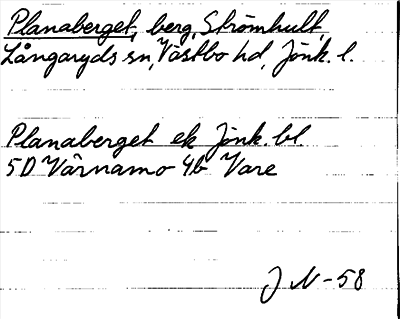 Planaberget, berg, Strömhult,
Långaryds sn, Västbo hd, Jönk. l.
Planaberget ek Jönk. bl.
5D Värnamo 4b Vare
J N-58